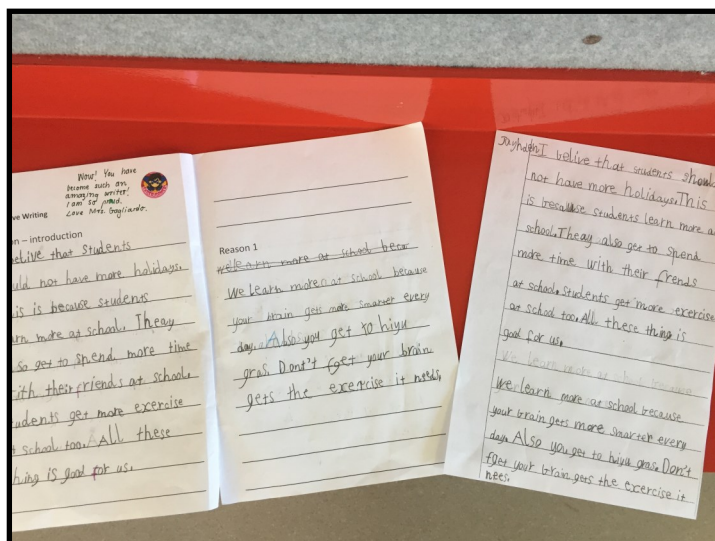 Wow! You have
become such an
amazing writer!
I am so proud.
Love Mrs. Gagliardo.
ve Writing
n – introduction
elive that students
uld not have more holidays.
is is because students
rn more at school. Theay
so get to spend more time
ith their friends at school.
udents get more exercise
t school too. All these
hing is good for us.
Reason 1
we learn more at school becar
we Learn more at school because
your brain gets more smarter every
day. Also you get to hiyu
gras. Dont't fget your brain
gets the exercise it needs.
I belive that students shoul
not have more holidays. This
is because students learn more a
school. Theay also get to spend
more time with their frends
at school. students get more exercise
at school too. All these thing is
good for us.
we learn more at school because
your brain gets more smarter every
day. Also you get to hiyu gras. Don't
fget your brain gets the exercise it
nees.